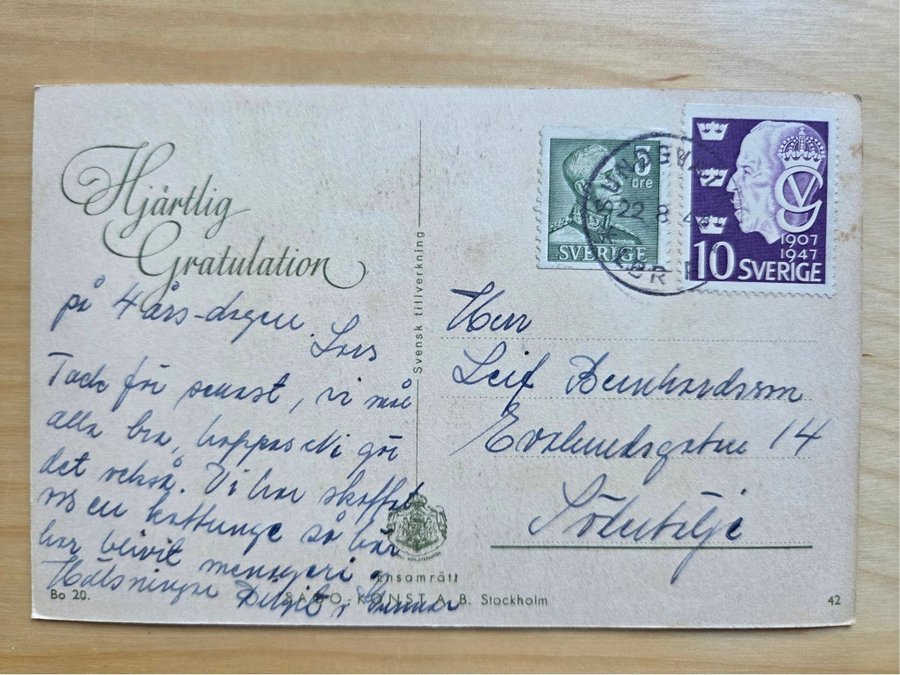 Hjärtlig
Gratulation
på 4 års-dagen.
Tack för senast, vi må
alla bra, hoppas Ni gör
det också. Vi har skaffat
oss en kattunge så här
har blivit menageri
Hälsningar
Bo 20.
Svensk tillverkning
Ensamrätt
SAGO-KONST A. B. Stockholm
42
5
öre
SVERIGE
22 8
1907
1947
10 SVERIGE
Herr
Leif Bernhardsson
Evalundsgatan 14
Södertälje